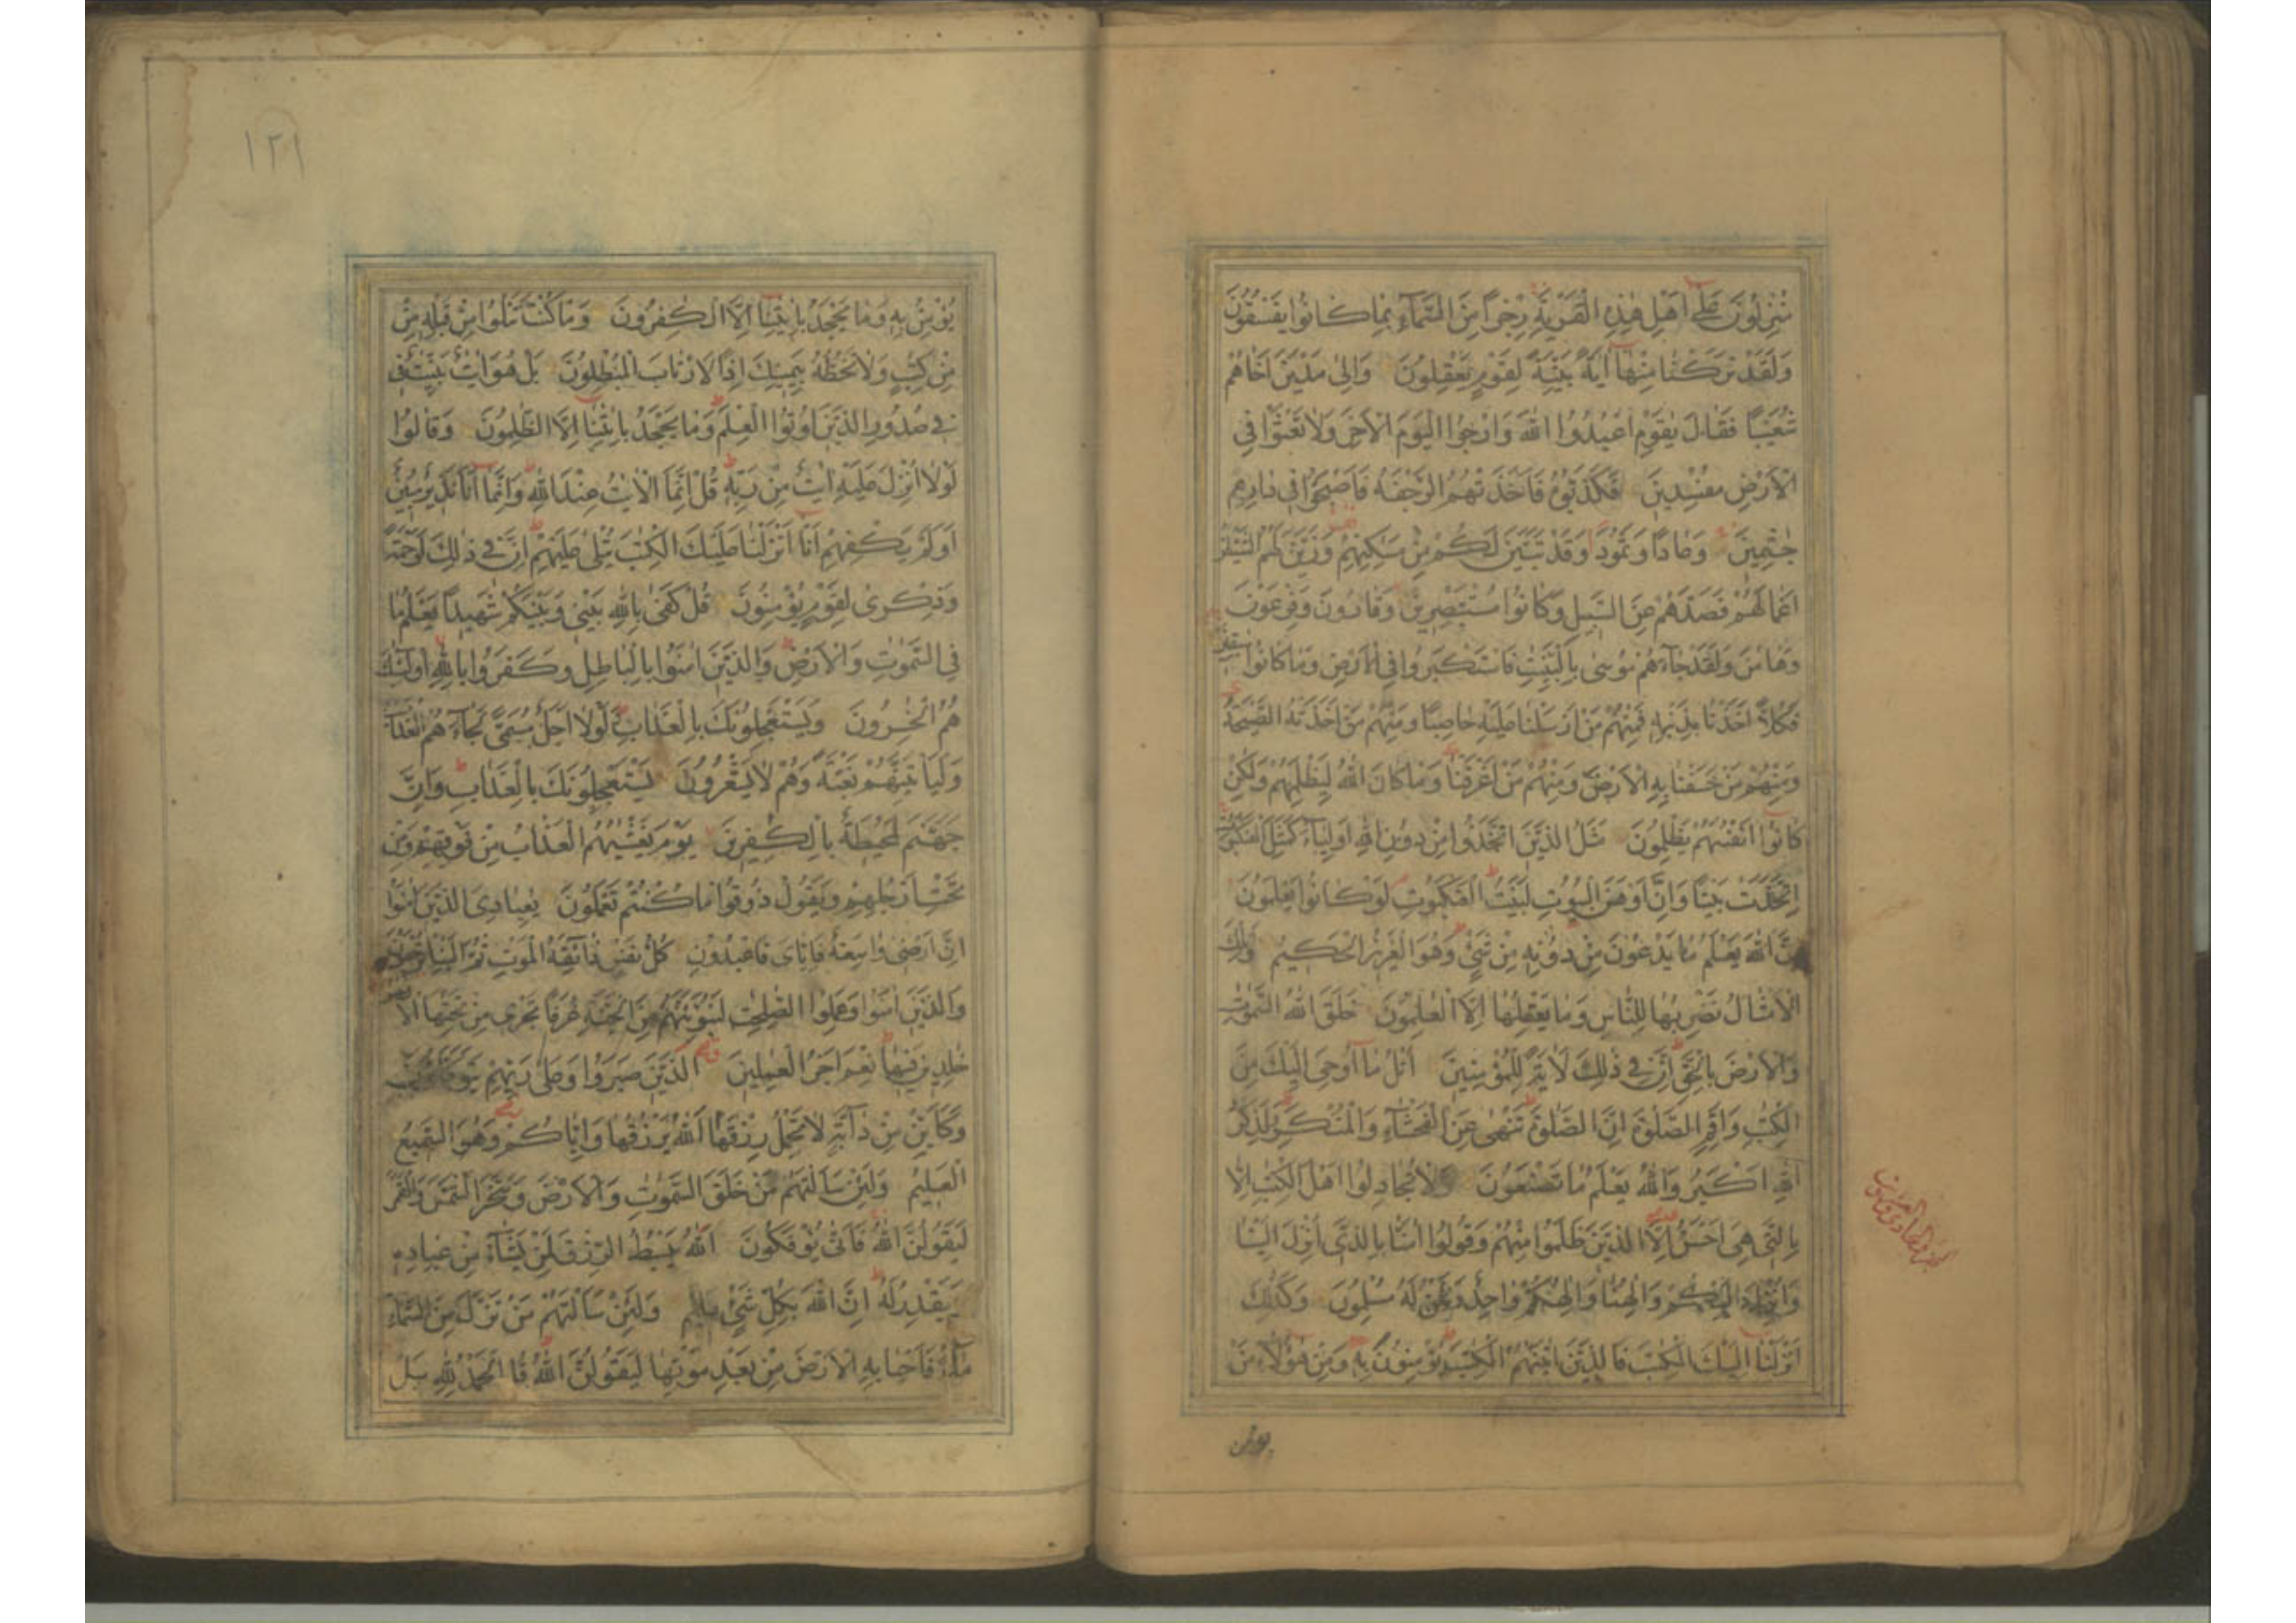 مُنْزِلُونَ عَلٰى اَهْلِ هٰذِهِ الْقَرْيَةِ رِجْزًا مِنَ السَّمَآءِ بِمَا كَانُوا يَفْسُقُونَ
وَلَقَدْ تَرَكْنَا مِنْهَآ اٰيَةً بَيِّنَةً لِقَوْمٍ يَعْقِلُونَ وَاِلٰى مَدْيَنَ اَخَاهُمْ
شُعَيْبًا فَقَالَ يٰقَوْمِ اعْبُدُوا اللّٰهَ وَارْجُوا الْيَوْمَ الْاٰخِرَ وَلَا تَعْثَوْا فِى
الْاَرْضِ مُفْسِدِينَ فَكَذَّبُوهُ فَاَخَذَتْهُمُ الرَّجْفَةُ فَاَصْبَحُوا فِى دَارِهِمْ
جٰثِمِينَ وَعَادًا وَثَمُودًا وَقَدْ تَبَيَّنَ لَكُمْ مِنْ مَسٰكِنِهِمْ وَزَيَّنَ لَهُمُ الشَّيْطٰنُ
اَعْمَالَهُمْ فَصَدَّهُمْ عَنِ السَّبِيلِ وَكَانُوا مُسْتَبْصِرِينَ وَقَارُونَ وَفِرْعَوْنَ
وَهَامٰنَ وَلَقَدْ جَآءَهُمْ مُوسٰى بِالْبَيِّنٰتِ فَاسْتَكْبَرُوا فِى الْاَرْضِ وَمَا كَانُوا سٰبِقِينَ
فَكُلًّا اَخَذْنَا بِذَنْبِهِ فَمِنْهُمْ مَنْ اَرْسَلْنَا عَلَيْهِ حَاصِبًا وَمِنْهُمْ مَنْ اَخَذَتْهُ الصَّيْحَةُ
وَمِنْهُمْ مَنْ خَسَفْنَا بِهِ الْاَرْضَ وَمِنْهُمْ مَنْ اَغْرَقْنَا وَمَا كَانَ اللّٰهُ لِيَظْلِمَهُمْ وَلٰكِنْ
كَانُوا اَنْفُسَهُمْ يَظْلِمُونَ مَثَلُ الَّذِينَ اتَّخَذُوا مِنْ دُونِ اللّٰهِ اَوْلِيَآءَ كَمَثَلِ الْعَنْكَبُوتِ
اِتَّخَذَتْ بَيْتًا وَاِنَّ اَوْهَنَ الْبُيُوتِ لَبَيْتُ الْعَنْكَبُوتِ لَوْ كَانُوا يَعْلَمُونَ
اِنَّ اللّٰهَ يَعْلَمُ مَا يَدْعُونَ مِنْ دُونِهِ مِنْ شَىْءٍ وَهُوَ الْعَزِيزُ الْحَكِيمُ وَتِلْكَ
الْاَمْثَالُ نَضْرِبُهَا لِلنَّاسِ وَمَا يَعْقِلُهَآ اِلَّا الْعٰلِمُونَ خَلَقَ اللّٰهُ السَّمٰوٰتِ
وَالْاَرْضَ بِالْحَقِّ اِنَّ فِى ذٰلِكَ لَاٰيَةً لِلْمُؤْمِنِينَ اُتْلُ مَآ اُوحِىَ اِلَيْكَ مِنَ
الْكِتٰبِ وَاَقِمِ الصَّلٰوةَ اِنَّ الصَّلٰوةَ تَنْهٰى عَنِ الْفَحْشَآءِ وَالْمُنْكَرِ وَلَذِكْرُ
اللّٰهِ اَكْبَرُ وَاللّٰهُ يَعْلَمُ مَا تَصْنَعُونَ وَلَا تُجَادِلُوا اَهْلَ الْكِتٰبِ اِلَّا
بِالَّتِى هِىَ اَحْسَنُ اِلَّا الَّذِينَ ظَلَمُوا مِنْهُمْ وَقُولُوا اٰمَنَّا بِالَّذِى اُنْزِلَ اِلَيْنَا
وَاُنْزِلَ اِلَيْكُمْ وَاِلٰهُنَا وَاِلٰهُكُمْ وَاحِدٌ وَنَحْنُ لَهُ مُسْلِمُونَ وَكَذٰلِكَ
اَنْزَلْنَا اِلَيْكَ الْكِتٰبَ فَالَّذِينَ اٰتَيْنٰهُمُ الْكِتٰبَ يُؤْمِنُونَ بِهِ وَمِنْ هٰؤُلَآءِ مَنْ
يؤمن
١٢١
يُؤْمِنُ بِهِ وَمَا يَجْحَدُ بِاٰيٰتِنَآ اِلَّا الْكٰفِرُونَ وَمَا كُنْتَ تَتْلُوا مِنْ قَبْلِهِ مِنْ
مِنْ كِتٰبٍ وَلَا تَخُطُّهُ بِيَمِينِكَ اِذًا لَارْتَابَ الْمُبْطِلُونَ بَلْ هُوَ اٰيٰتٌ بَيِّنٰتٌ فِى
فِى صُدُورِ الَّذِينَ اُوتُوا الْعِلْمَ وَمَا يَجْحَدُ بِاٰيٰتِنَآ اِلَّا الظّٰلِمُونَ وَقَالُوا
لَوْلَآ اُنْزِلَ عَلَيْهِ اٰيٰتٌ مِنْ رَبِّهِ قُلْ اِنَّمَا الْاٰيٰتُ عِنْدَ اللّٰهِ وَاِنَّمَآ اَنَا نَذِيرٌ مُبِينٌ
اَوَلَمْ يَكْفِهِمْ اَنَّآ اَنْزَلْنَا عَلَيْكَ الْكِتٰبَ يُتْلٰى عَلَيْهِمْ اِنَّ فِى ذٰلِكَ لَرَحْمَةً
وَذِكْرٰى لِقَوْمٍ يُؤْمِنُونَ قُلْ كَفٰى بِاللّٰهِ بَيْنِى وَبَيْنَكُمْ شَهِيدًا يَعْلَمُ مَا
فِى السَّمٰوٰتِ وَالْاَرْضِ وَالَّذِينَ اٰمَنُوا بِالْبَاطِلِ وَكَفَرُوا بِاللّٰهِ اُولٰٓئِكَ
هُمُ الْخٰسِرُونَ وَيَسْتَعْجِلُونَكَ بِالْعَذَابِ وَلَوْلَآ اَجَلٌ مُسَمًّى لَجَآءَهُمُ الْعَذَابُ
وَلَيَاْتِيَنَّهُمْ بَغْتَةً وَهُمْ لَا يَشْعُرُونَ يَسْتَعْجِلُونَكَ بِالْعَذَابِ وَاِنَّ
جَهَنَّمَ لَمُحِيطَةٌ بِالْكٰفِرِينَ يَوْمَ يَغْشٰيهُمُ الْعَذَابُ مِنْ فَوْقِهِمْ وَمِنْ
تَحْتِ اَرْجُلِهِمْ وَيَقُولُ ذُوقُوا مَا كُنْتُمْ تَعْمَلُونَ يٰعِبَادِىَ الَّذِينَ اٰمَنُوا
اِنَّ اَرْضِى وَاسِعَةٌ فَاِيَّاىَ فَاعْبُدُونِ كُلُّ نَفْسٍ ذَآئِقَةُ الْمَوْتِ ثُمَّ اِلَيْنَا تُرْجَعُونَ
وَالَّذِينَ اٰمَنُوا وَعَمِلُوا الصّٰلِحٰتِ لَنُبَوِّئَنَّهُمْ مِنَ الْجَنَّةِ غُرَفًا تَجْرِى مِنْ تَحْتِهَا الْاَنْهٰرُ
خٰلِدِينَ فِيهَا نِعْمَ اَجْرُ الْعٰمِلِينَ الَّذِينَ صَبَرُوا وَعَلٰى رَبِّهِمْ يَتَوَكَّلُونَ
وَكَاَيِّنْ مِنْ دَآبَّةٍ لَا تَحْمِلُ رِزْقَهَا اَللّٰهُ يَرْزُقُهَا وَاِيَّاكُمْ وَهُوَ السَّمِيعُ
الْعَلِيمُ وَلَئِنْ سَاَلْتَهُمْ مَنْ خَلَقَ السَّمٰوٰتِ وَالْاَرْضَ وَسَخَّرَ الشَّمْسَ وَالْقَمَرَ
لَيَقُولُنَّ اللّٰهُ فَاَنّٰى يُؤْفَكُونَ اَللّٰهُ يَبْسُطُ الرِّزْقَ لِمَنْ يَشَآءُ مِنْ عِبَادِهِ
وَيَقْدِرُ لَهُ اِنَّ اللّٰهَ بِكُلِّ شَىْءٍ عَلِيمٌ وَلَئِنْ سَاَلْتَهُمْ مَنْ نَزَّلَ مِنَ السَّمَآءِ
مَآءً فَاَحْيَا بِهِ الْاَرْضَ مِنْ بَعْدِ مَوْتِهَا لَيَقُولُنَّ اللّٰهُ قُلِ الْحَمْدُ لِلّٰهِ بَلْ